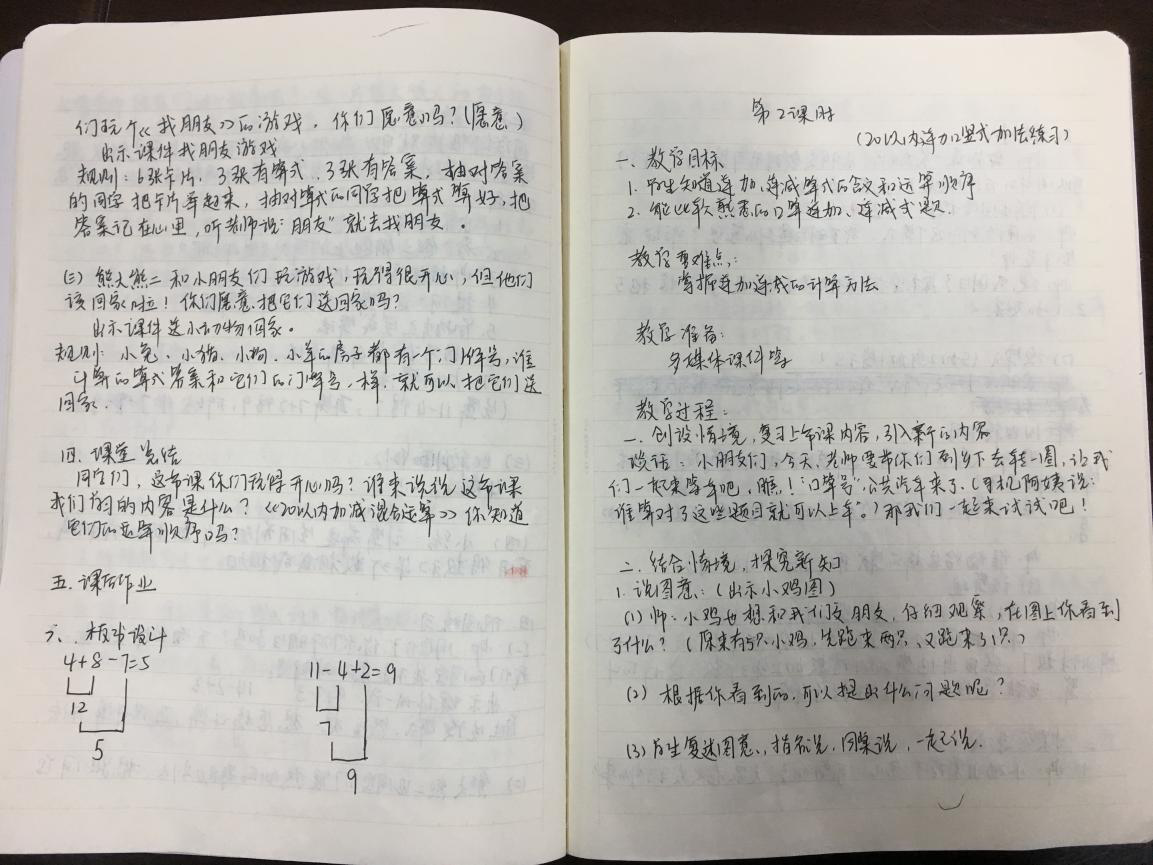 们玩个《找朋友》的游戏，你们愿意吗？(愿意)
出示课件找朋友游戏
规则：6张卡片，3张有算式，3张有答案，抽对答案
的同学把卡片举起来，抽对算式的同学把算式算好，把
答案记在心里，听老师说"朋友"就去找朋友。
(三) 熊大熊二和小朋友们玩游戏，玩得很开心，但他们
该回家啦！你们愿意把它们送回家吗？
出示课件送小动物回家。
规则：小兔、小猫、小狗、小羊的房子都有一个门牌号，谁
计算的算式答案和它们的门牌号一样，就可以把它们送
回家.
四.课堂总结
同学们，这节课你们玩得开心吗？谁来说说这节课
我们学习的内容是什么？《20以内加减混合运算》你知道
它们的运算顺序吗？
五.课后作业
六、板书设计
4+8-7=5
11-4+2=9
12
7
5
9
第2课时
(20以内连加口竖式加法练习)
一、教学目标
1.学生知道连加、连减算式的含义和运算顺序
2.能比较熟悉的口算连加、连减式题.
教学重难点：
掌握连加连减的计算方法
教学准备：
多媒体课件等
教学过程：
一.创设情境，复习上节课内容，引入新的内容
谈话：小朋友们，今天，老师要带你们到乡下去转一圈，让我
们一起乘车吧，瞧！"口算号"公共汽车来了.(司机阿姨说：
谁算对了这些题目就可以上车。)那我们一起来试试吧！
二.结合情境，探究新知
1.说图意：(出示小鸡图)
(1)师：小鸡也想和我们交朋友，仔细观察，在图上你看到
了什么？(原来有5只小鸡，先跑来两只、又跑来了1只)
(2)根据你看到的，可以提出什么问题呢？
(3)学生复述图意，指名说，同桌说，一起说.